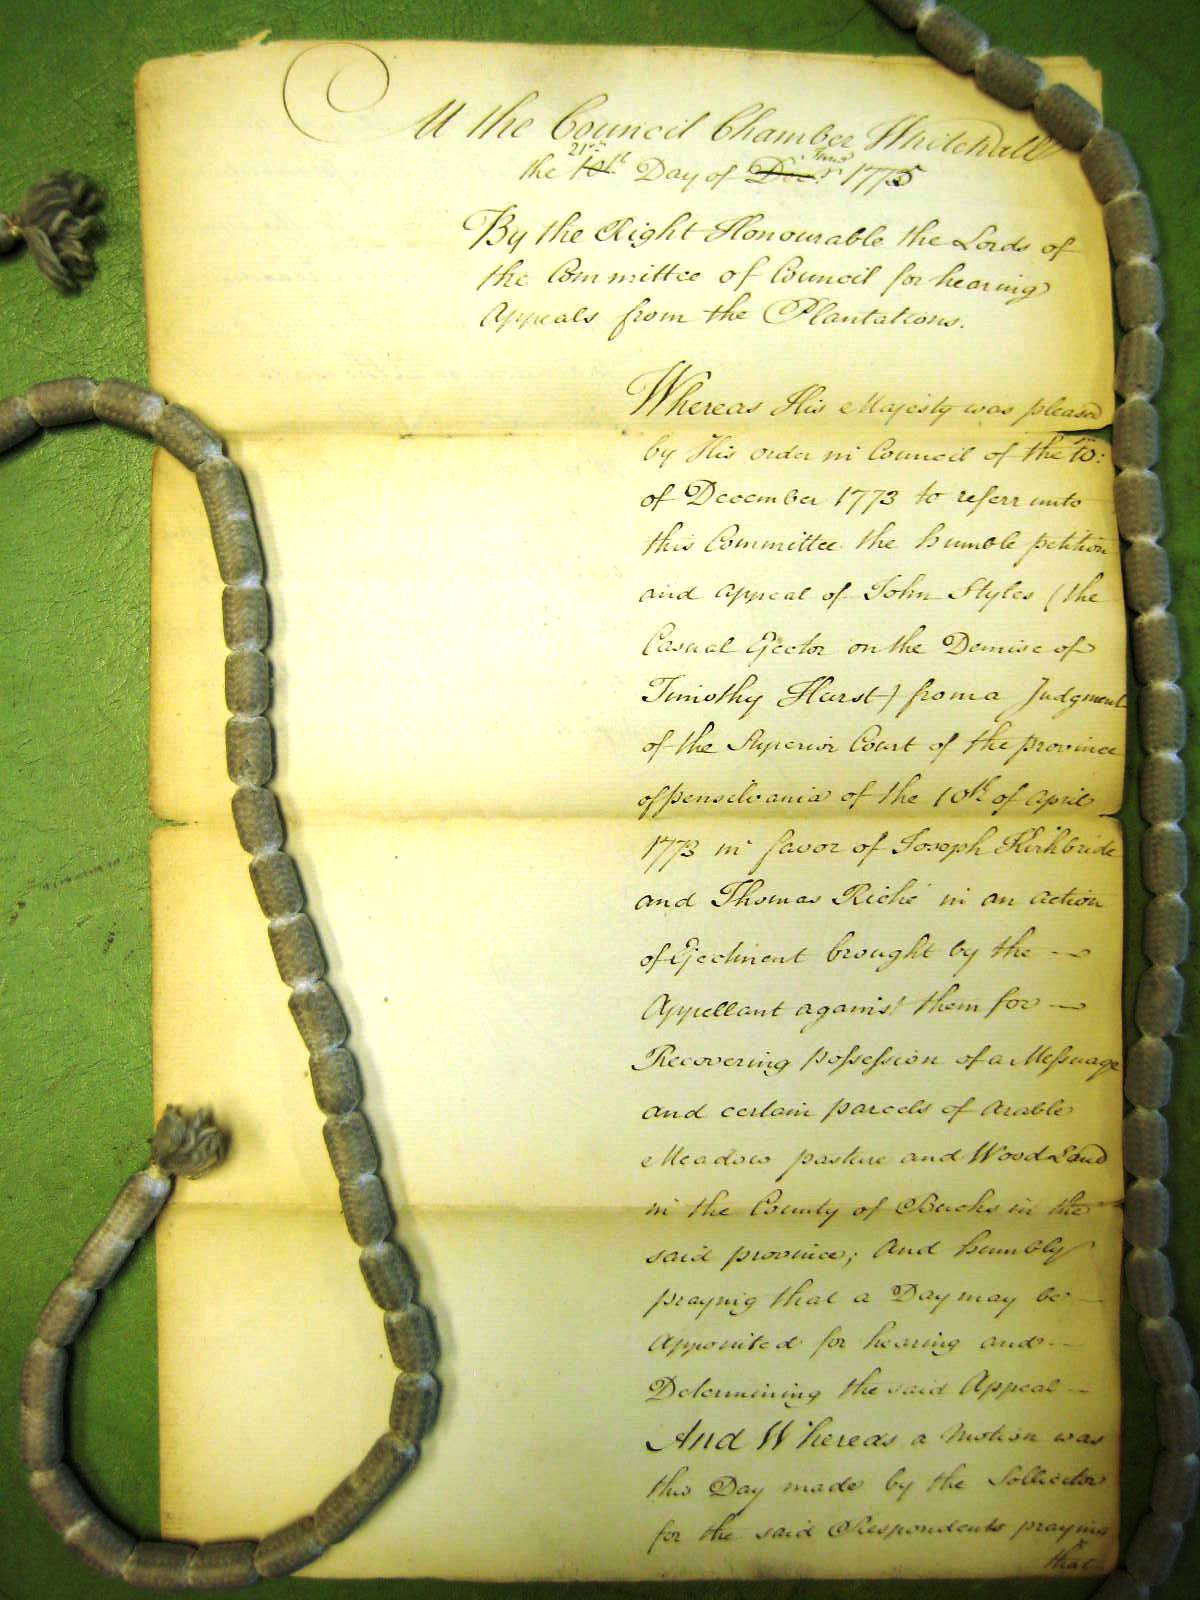 At the Council Chamber Whitehall
the 21st 10th Day of Decr. 1775
By the Right Honourable the Lords of
the Committee of Council for hearing
Appeals from the Plantations.
Whereas His Majesty was pleased
by His order in Council of the 10:
of December 1773 to referr unto
this Committee the humble petition
and appeal of John Styles (the
Casual Ejector on the Demise of
Timothy Hurst) from a Judgment
of the Superior Court of the province
of pensilvania of the 10th of April
1773 in favor of Joseph Kirkbride
and Thomas Riché in an action
of Ejectment brought by the
Appellant against them for
Recovering possession of a Messuage
and certain parcels of Arable
Meadow pasture and Wood Land
in the County of Bucks in the
said province; And humbly
praying that a Day may be
Appointed for hearing and
Determining the said Appeal
And Whereas a Motion was
this Day made by the Sollicitor
for the said Respondents praying
that